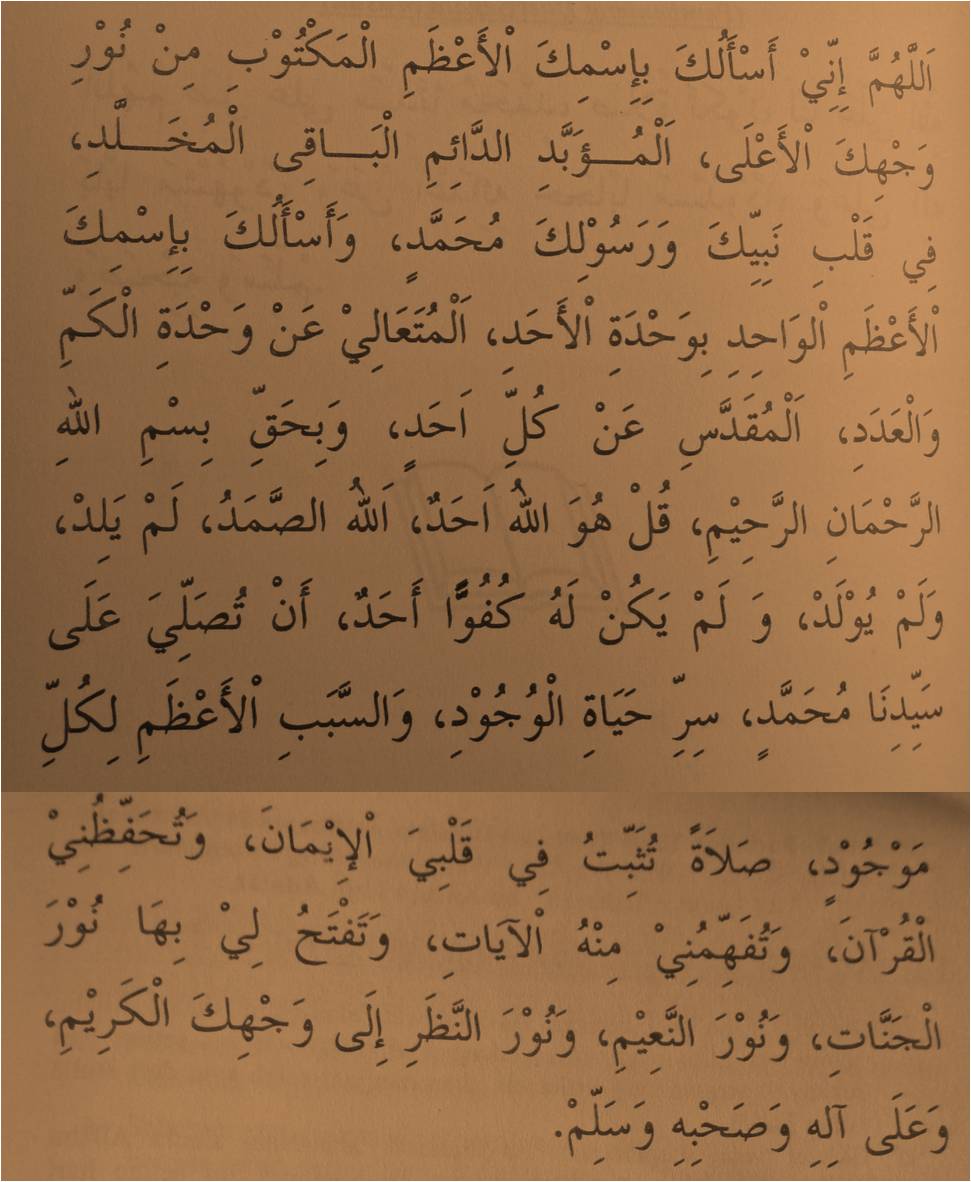 اَللَّهُمَّ إِنِّيْ أَسْأَلُكَ بِإِسْمِكَ اْلأَعْظَمِ الْمَكْتُوْبِ مِنْ نُوْرِ
وَجْهِكَ اْلأَعْلَى، اَلْمُــؤَبَّدِ الدَّائِمِ الْبَــاقِى الْمُخَــلَّدِ،
فِي قَلْبِ نَبِيِّكَ وَرَسُوْلِكَ مُحَمَّدٍ، وَأَسْأَلُكَ بِإِسْمِكَ
اْلأَعْظَمِ اْلوَاحِدِ بِوَحْدَةِ اْلأَحَدِ، اَلْمُتَعَالِيْ عَنْ وَحْدَةِ الْكَمِّ
وَالْعَدَدِ، اَلْمُقَدَّسِ عَنْ كُلِّ اَحَدٍ، وَبِحَقِّ بِسْمِ اللهِ
الرَّحْمَانِ الرَّحِيْمِ، قُلْ هُوَ اللهُ اَحَدٌ، اَللهُ الصَّمَدُ، لَمْ يَلِدْ،
وَلَمْ يُوْلَدْ، وَ لَمْ يَكُنْ لَهُ كُفُوًّا أَحَدٌ، أَنْ تُصَلِّيَ عَلَى
سَيِّدِنَا مُحَمَّدٍ، سِرِّ حَيَاةِ الْوُجُوْدِ، وَالسَّبَبِ اْلأَعْظَمِ لِكُلِّ
مَوْجُوْدٍ، صَلاَةً تُثَبِّتُ فِي قَلْبِيَ اْلإِيْمَانَ، وَتُحَفِّظُنِيْ
الْقُرْآنَ، وَتُفَهِّمُنِيْ مِنْهُ اْلآيَاتِ، وَتَفْتَحُ لِيْ بِهَا نُوْرَ
الْجَنَّاتِ، وَنُوْرَ النَّعِيْمِ، وَنُوْرَ النَّظَرِ إِلَى وَجْهِكَ الْكَرِيْمِ،
وَعَلَى آلِهِ وَصَحْبِهِ وَسَلِّمْ.